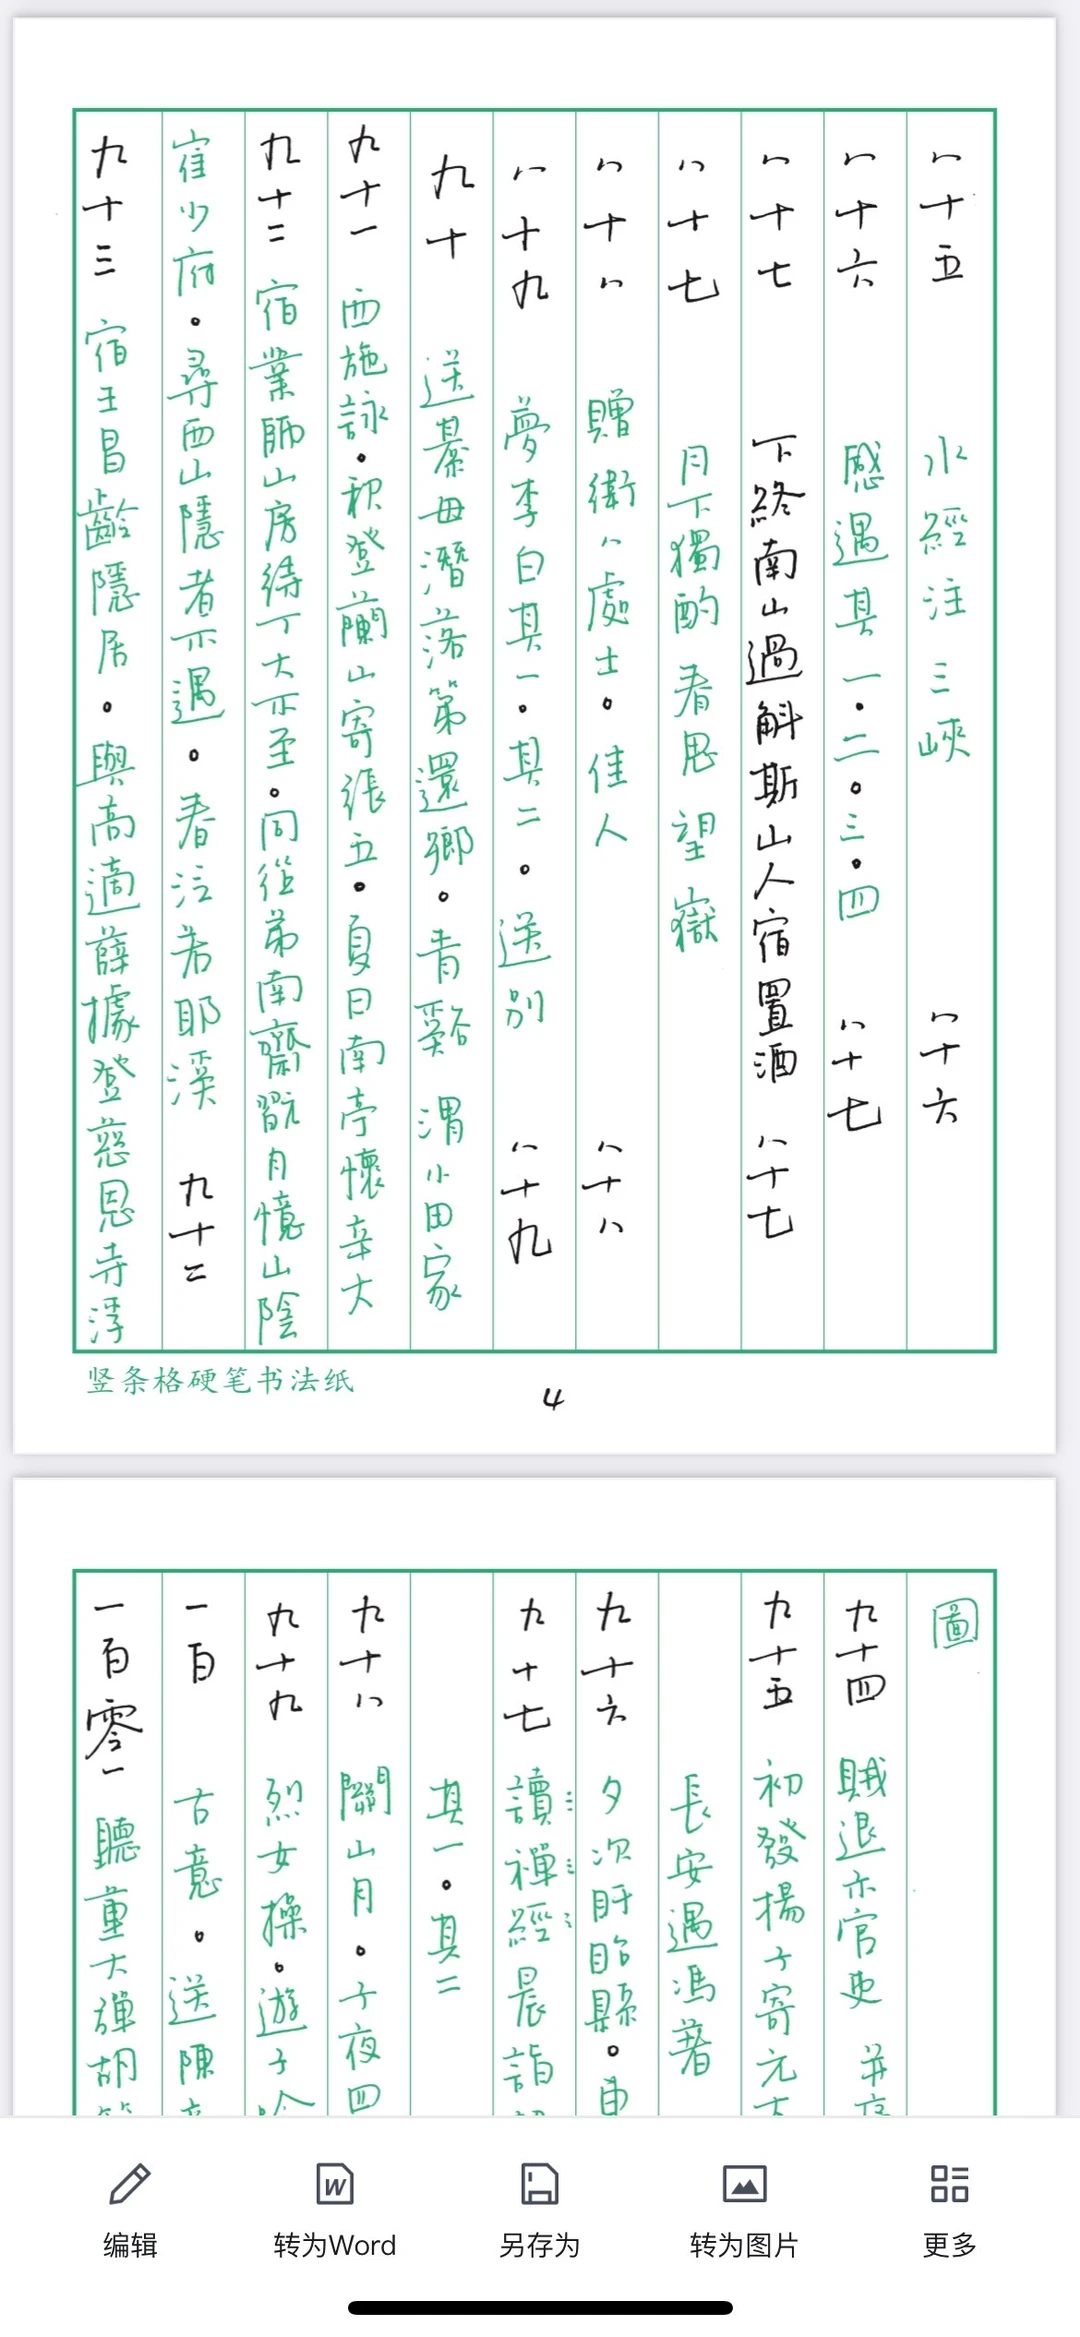 八十五 水經注 三峽 八十六
八十六 感遇其一。二。三。四 八十七
八十七 下終南山過斛斯山人宿置酒 八十七
八十七 月下獨酌 春思 望嶽
八十八 贈衛八處士。佳人 八十八
八十九 夢李白其一。其二。送別 八十九
九十 送綦毋潛落第還鄉。青谿 渭川田家
九十一 西施詠。秋登蘭山寄張五。夏日南亭懷辛大
九十二 宿業師山房待丁大不至。同從弟南齋翫月憶山陰
崔少府。尋西山隱者不遇。春泛若耶溪 九十二
九十三 宿王昌齡隱居。與高適薛據登慈恩寺浮
竖条格硬笔书法纸
4
圖
九十四 賊退示官吏 并序
九十五 初發揚子寄元大
長安遇馮著
九十六 夕次盱眙縣。東
九十七 讀禪經晨詣
其一。其二
九十八 關山月。子夜四
九十九 烈女操。遊子吟
一百 古意。送陳章
一百零一 聽董大彈胡笳
编辑
转为Word
另存为
转为图片
更多